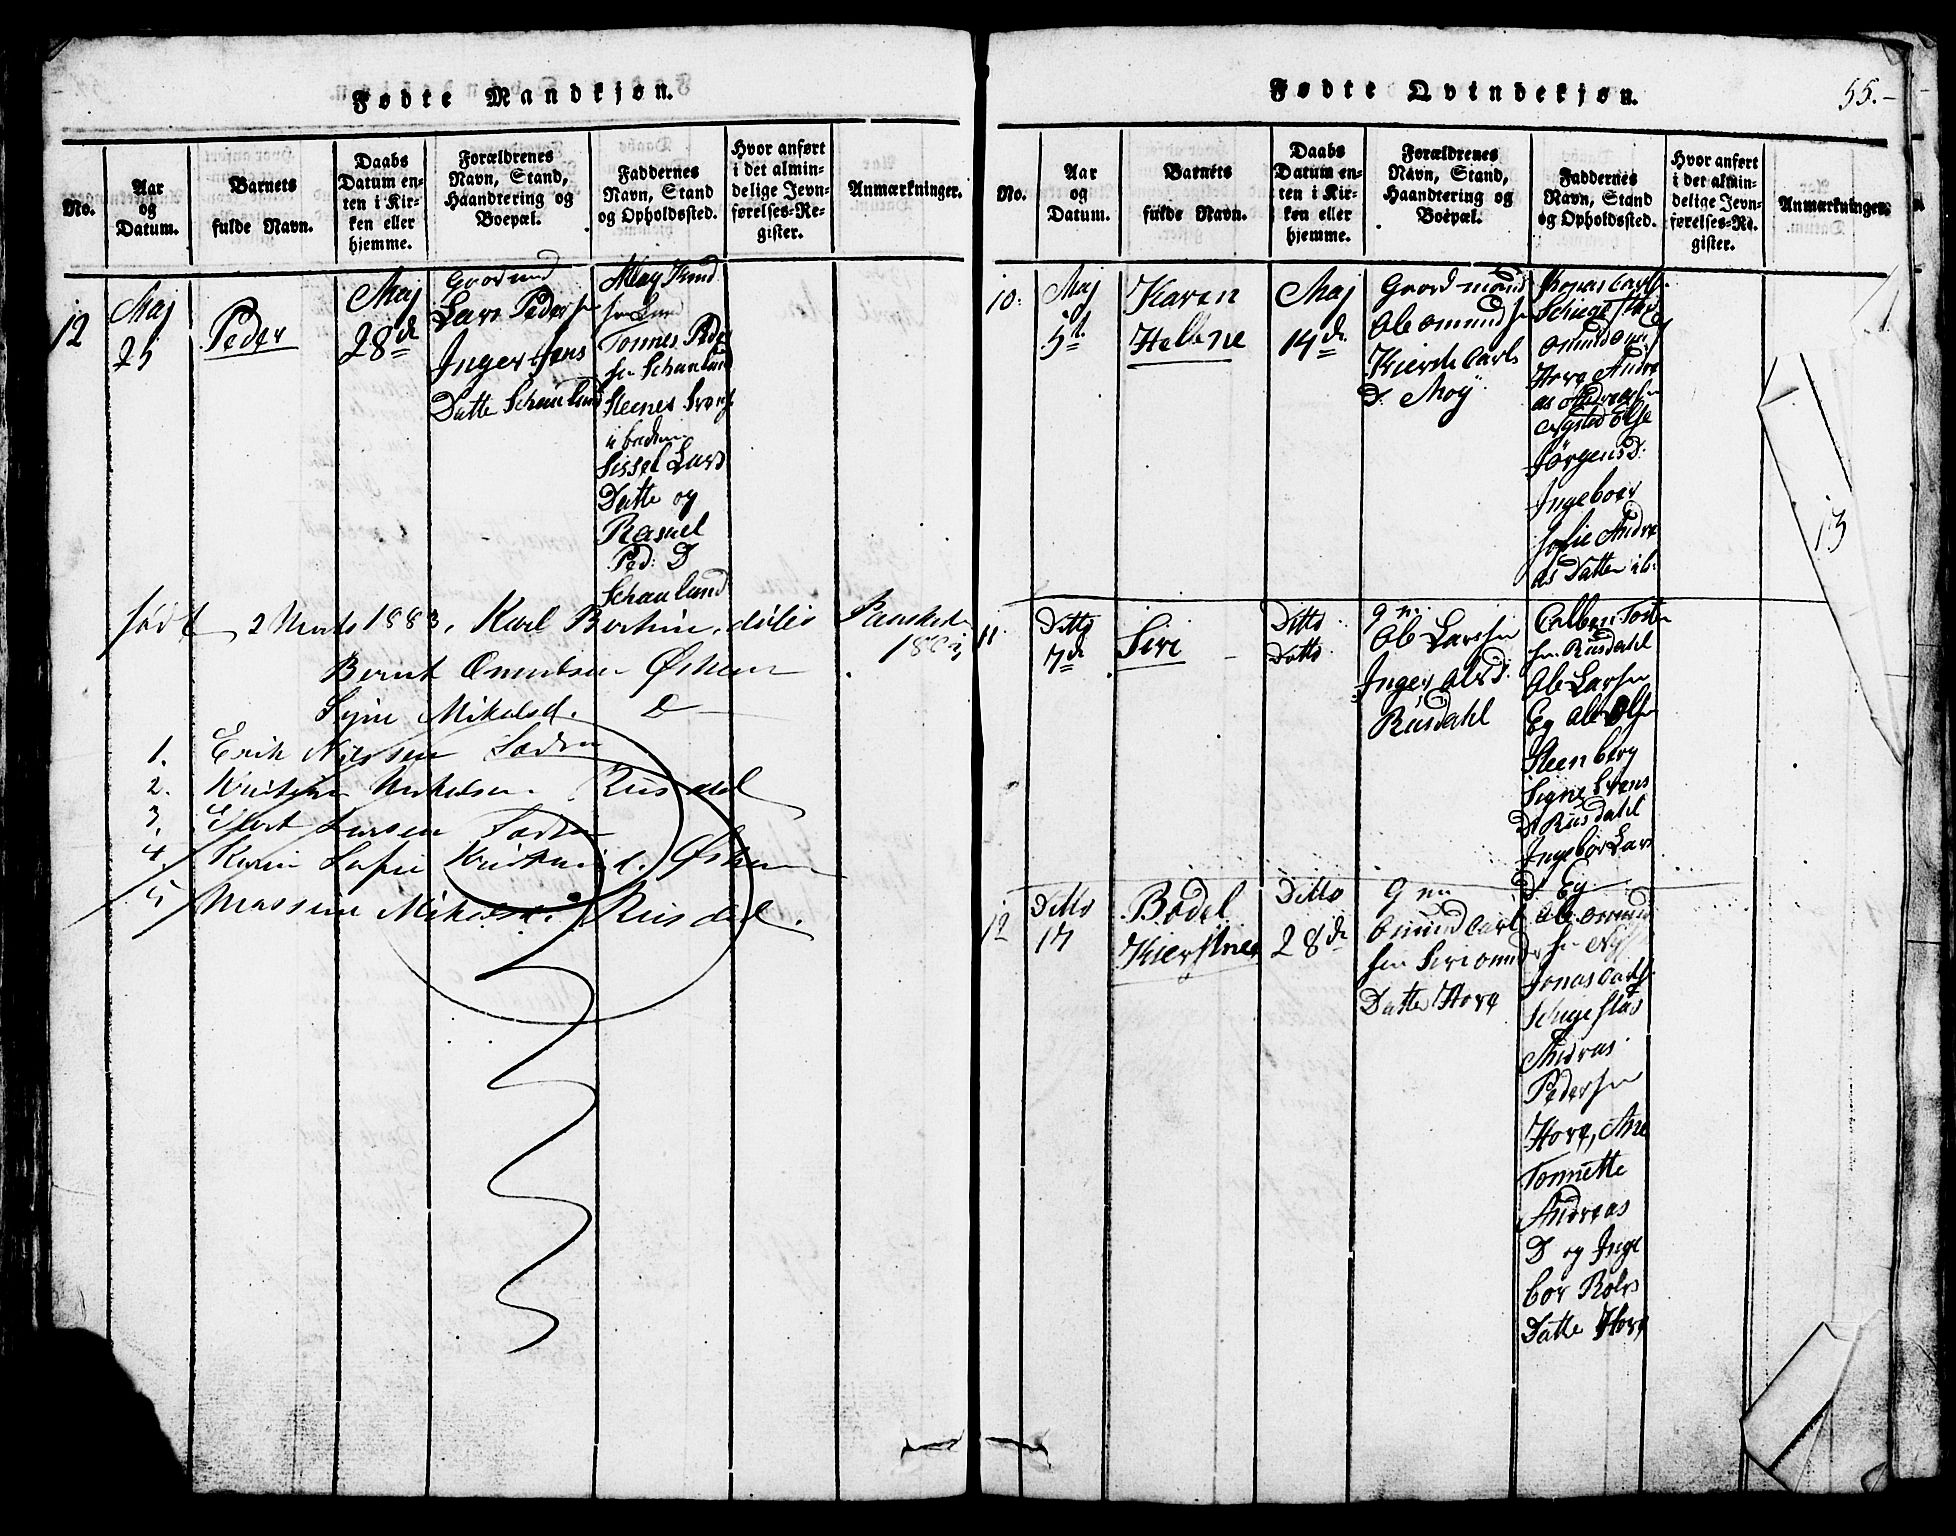 Fødte Mandkjøn.
No.
Aar
og
Datum.
Barnets
fulde Navn.
Daabs
Datum en-
ten i Kir-
ken eller
hjemme.
Forældrenes
Navn, Stand,
Haandtering og
Boepæl.
Faddernes
Navn, Stand
og Opholdssted.
Hvor anført
i det almin-
delige Jevn-
førelses-Re-
gister.
Anmærkninger.
12
Maj
25
Peder
Maj
28de
Gaardmd
Lars Peders
Inger Jens
Datte Schaaland
Knud
sen Lund
Tonnes Peder
sen Schaaland
Steenes
Sissel Lars
Datte og
Rasmel
Ped: D
Schaaland
født 2 Marts 1883, Karl Bertine, døbt Paaskeda
1883
Bernt Omundsen Østhem
Syne Mikelsd. D
1. Erik Nilssen
2. Kristian Mikelsen Rusdal
3. Elert Larsen
4. Karin Sofie Kristiansd. Østhem
5 Massine Mikelsd. Rusdal.
Fødte Qvindekjøn.
55.-
No.
Aar
og
Datum.
Barnets
fulde Navn.
Daabs
Datum en-
ten i Kir-
ken eller
hjemme.
Forældrenes
Navn, Stand,
Haandtering og
Boepæl.
Faddernes
Navn, Stand
og Opholdssted.
Hvor anført
i det almin-
delige Jevn-
førelses-Re-
gister.
Anmærkninger.
10.
Maj
5t
Karen
Hellene
Maj
14de
Gaardmand
Ole Omundsn
Kierste Carls
D. Moÿ
Jonas Carls
Schigestad
Omund Omds
Hove Andre
as Andreassn
Aagsted Else
Jørgensd:
Ingeboer
Sofie Andre
as Datter ib:
11
Ditto
7de
Siri
Ditto
Ditto
gm:
Ole Larssen
Inger Olsd:
Rusdahl
Tosten
sen Rusdahl
Ole Larsen
Eg Ole Olsen
Steenberg
Signe Svens
D Rusdahl
Ingebor Lars
D. Eg
12
Ditto
17
Bodel
Kierstine
Ditto
28de
gm
Omund Carl
sen Siri Omnd
Datte Hove
Ole Omund
sen
Jonas Carls
Schigestad
Andreas
Pedersen
Hove, Ane
Tonnette
Andreas
D og Inge
bor Rolvs
Datte Hove
13